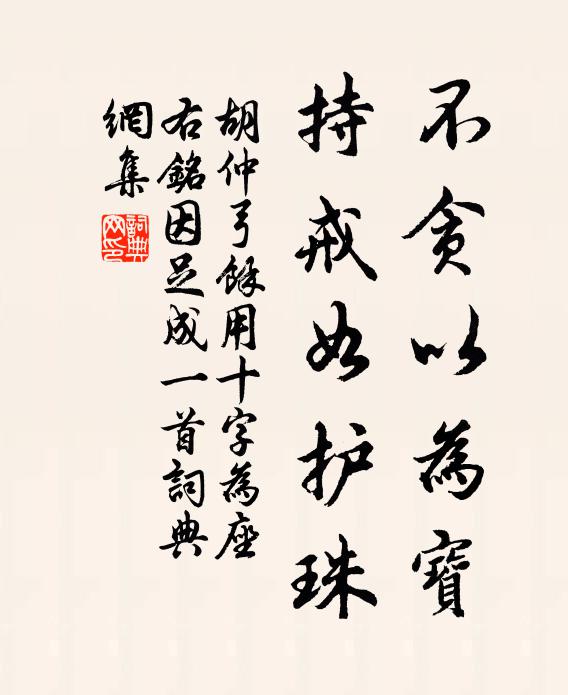 不貪以為寶
持戒如护珠
胡仲弓餘用十字為座
右銘因足成一首詞典
網集
詞典
网印